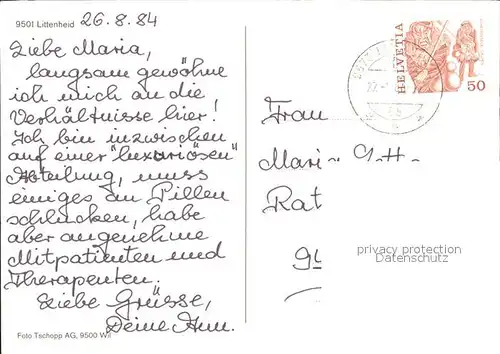 9501 Littenheid
26.8.84
Liebe Maria,
langsam gewöhne
ich mich an die
Verhältnisse hier!
Ich bin inzwischen
auf einer "luxuriösen"
Abteilung, muss
einiges an Pillen
schlucken, habe
aber angenehme
Mitpatienten und
Therapeuten.
Liebe Grüsse,
Deine Ann.
Foto Tschopp AG, 9500 Wil
HELVETIA
50
Frau
Maria
Rat
privacy protection
Datenschutz